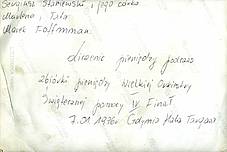 Sergiusz Staniewski i jego córka
Marlena, Tata
Marek Foffmman.
Liczenie pieniędzy podczas
zbiórki pieniędzy Wielkiej Orkiestry
Świątecznej pomocy IV Finał
7.01 1996r Gdynia Hala Targowa